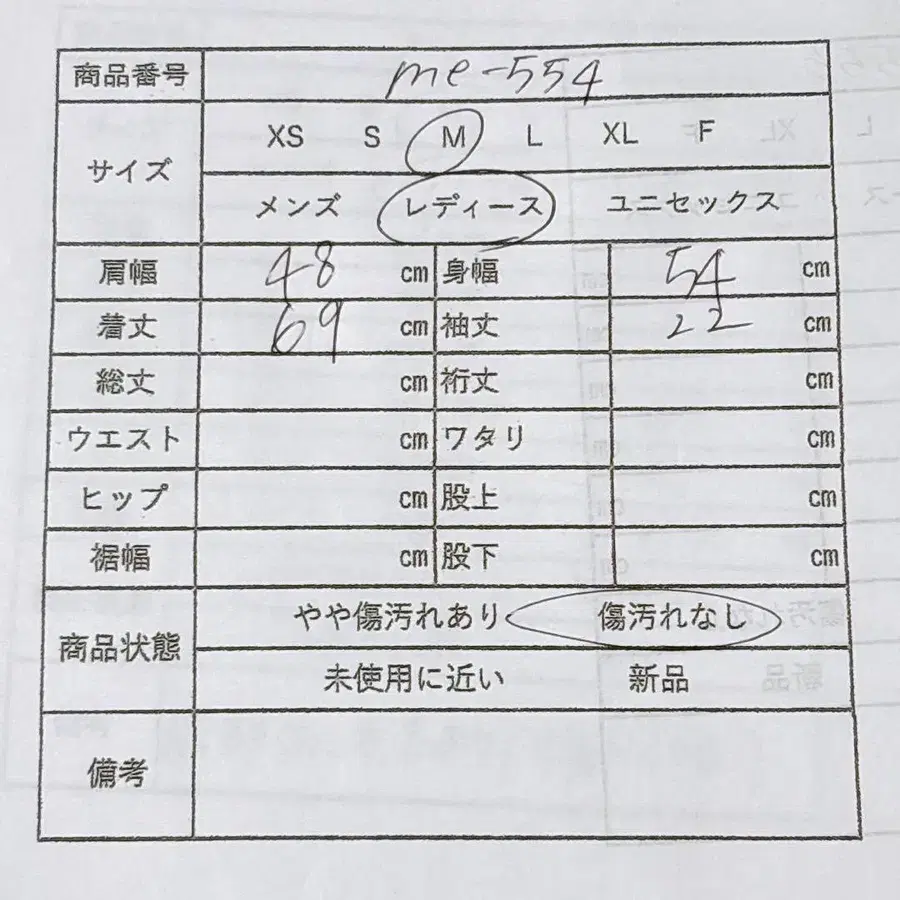 商品番号 me-554
サイズ XS S M L XL F
メンズ レディース ユニセックス
肩幅 48 cm 身幅 54 cm
着丈 69 cm 袖丈 22 cm
総丈 cm 裄丈 cm
ウエスト cm ワタリ cm
ヒップ cm 股上 cm
裾幅 cm 股下 cm
商品状態 やや傷汚れあり 傷汚れなし
未使用に近い 新品
備考